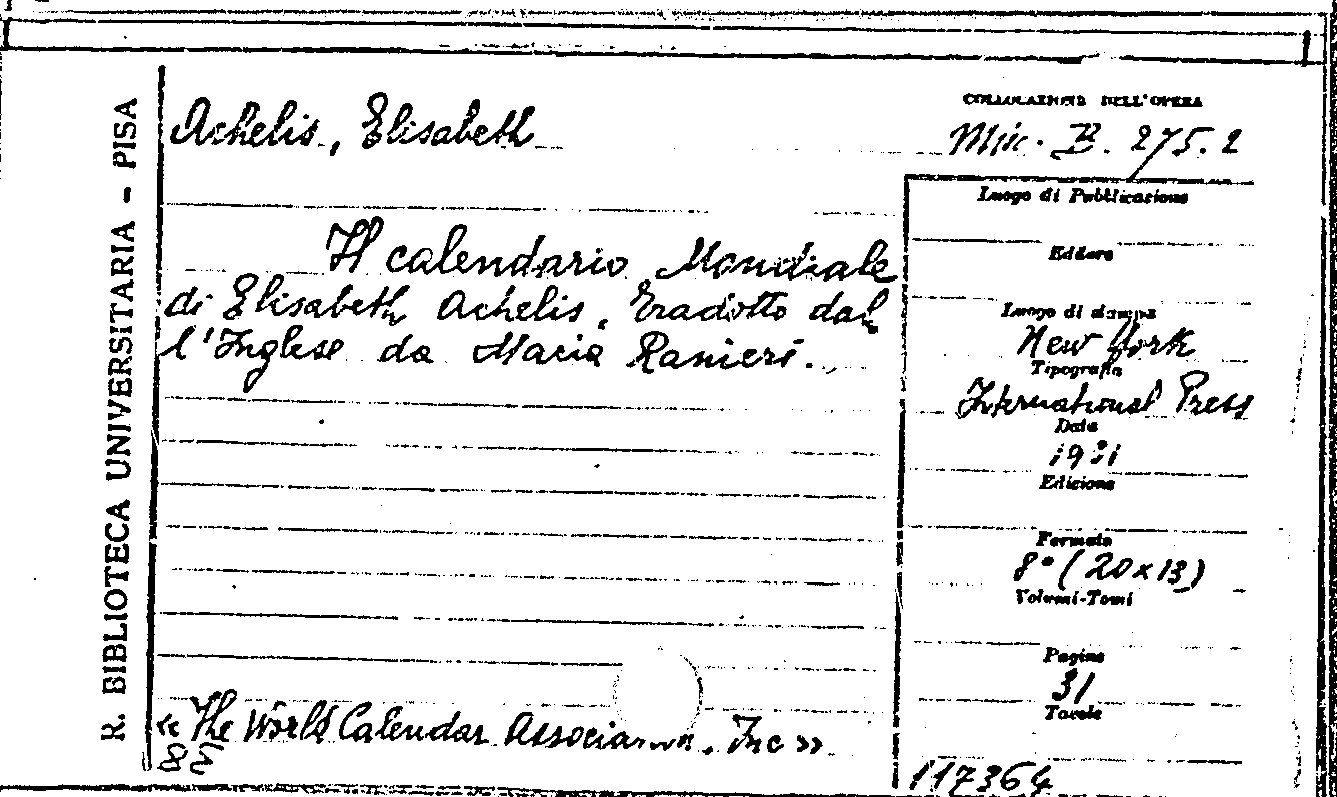 R. BIBLIOTECA UNIVERSITARIA - PISA
Achelis, Elisabeth
Il calendario Mondiale
di Elisabeth Achelis, Tradotto dal
l'Inglese da Maria Ranieri.
« The World Calendar Association, Inc »
85
COLLOCAZIONE DELL'OPERA
Misc. B. 275. 2
Luogo di Pubblicazione
Editore
Luogo di stampa
New York
Tipografia
International Press
Data
Edizione
Formato
8° (20x13)
Volumi-Tomi
Pagine
31
Tavole
117364